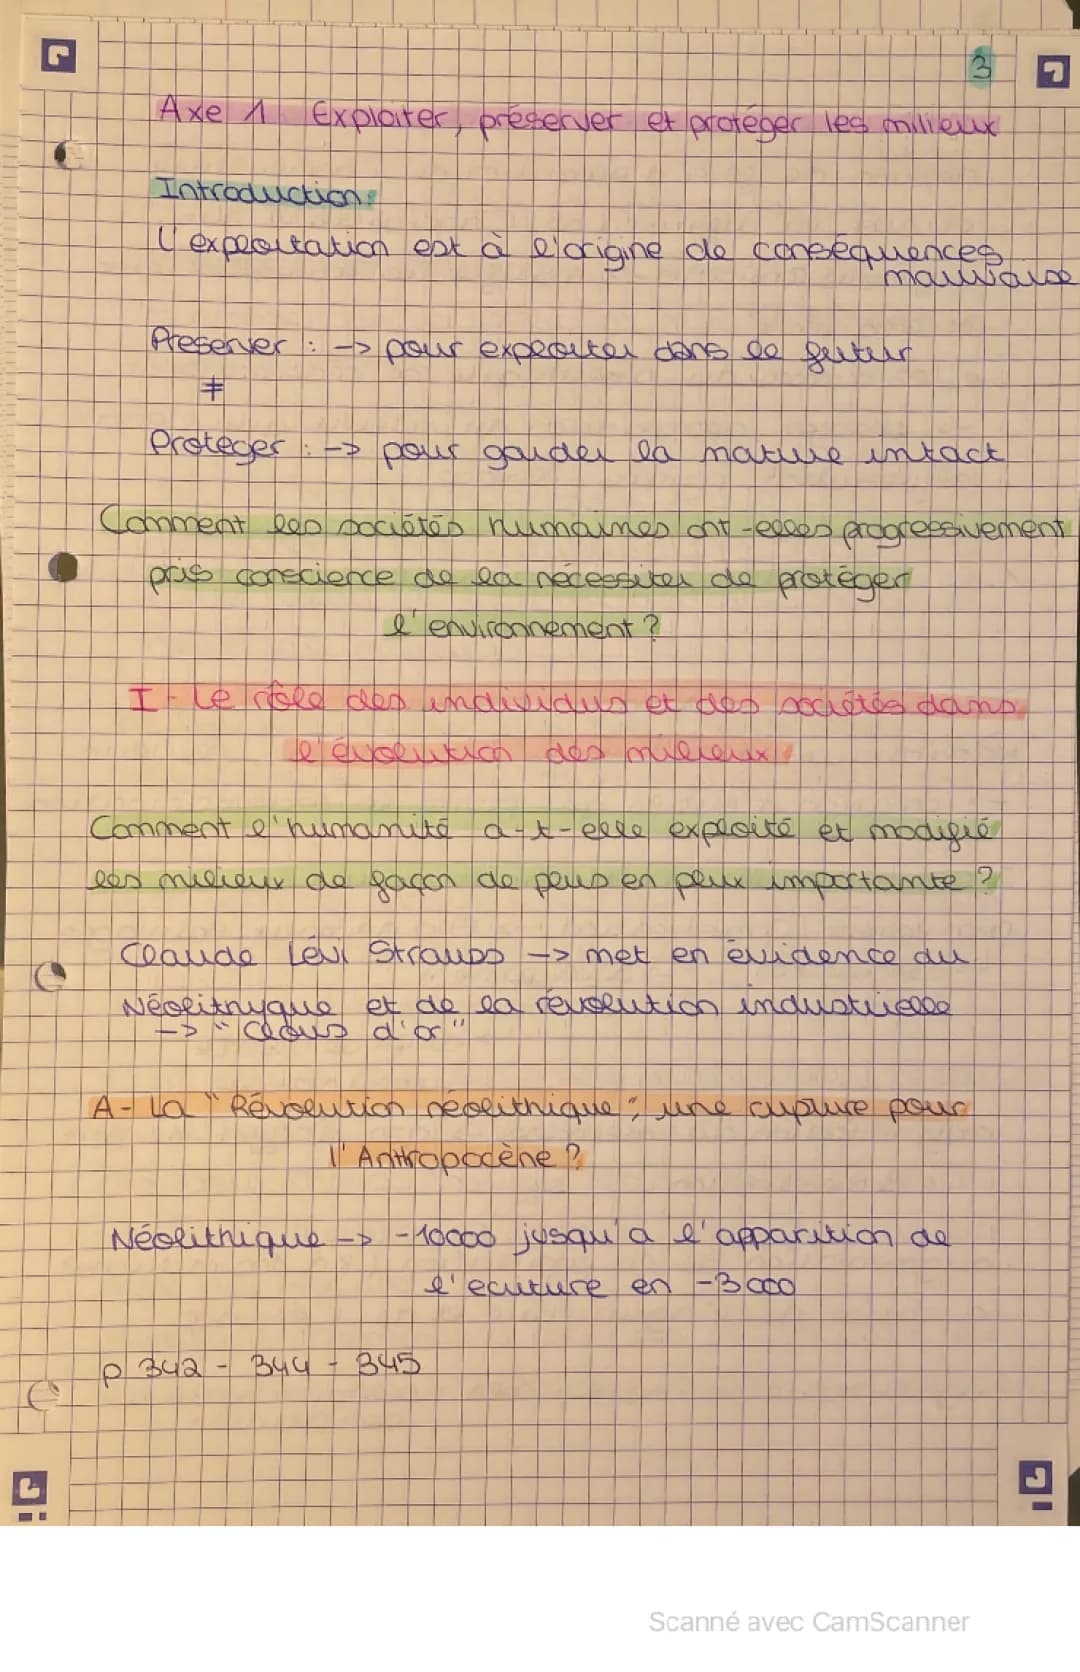 3
Axe 1 Exploiter, préserver et protéger les milieux
Introduction:
L'exploitation est à l'origine de conséquences
mauvaise
Preserver : -> pour exploiter dans le futur
≠
Proteger : -> pour garder la nature intact
Comment les sociétés humaines ont-elles progressivement
pris conscience de la nécessiter de protéger
l'environnement ?
I - Le rôle des individus et des sociétés dans
l'évolution des milieux
Comment l'humanité a-t-elle exploité et modifié
les milieux de façon de plus en plux importante ?
Claude Lévi Strauss -> met en évidence du
Néolithyque et de la révolution industrielle
-> "Clous d'or"
A- La "Révolution néolithique", une rupture pour
l'Anthropocène ?
Néolithique -> -10000 jusqu'a l'apparition de
l'écuture en -3000
p 342 - 344 - 345
Scanné avec CamScanner